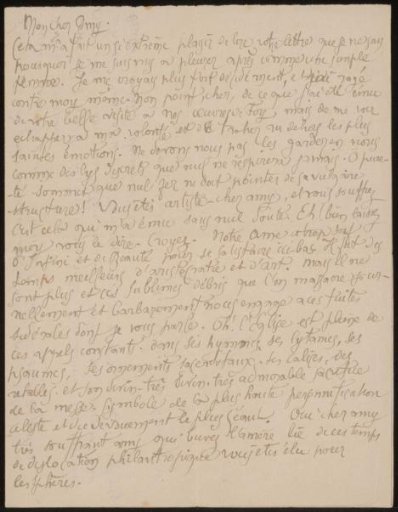 Mon cher Ami.
Cela m'a fait un si extrême plaisir de lire votre lettre que je ne sais
pourquoi je me suis mis à pleurer après comme une simple
femme. Je me croyais plus fort décidément, et j'ai ragé
contre moi même. Non point, cher, de ce que j'ai été ému
de votre belle visite à nos œuvres, mais de me voir
échapper à ma volonté et de au dehors les plus
saintes émotions. Ne devons nous pas les garder en nous
comme des lys discrets que nul ne respirera jamais. O pure
sommet que nul ne doit de sa vulgaire
structure! Vous êtes artiste cher ami, et vous souffrez
c'est cela qui m'a ému sans nul doute. Eh! bien laissez
moi vous le dire. Croyez. Notre âme a trop soif
d'infini et de beauté pour se satisfaire ici bas. Il fut des
temps meilleurs d'aristocratie et d'art. Mais ils ne
sont plus et ces sublimes débris que l'on massacre jour-
nellement et barbarement nous engage à ces fuites
sidérales dont je vous parle. Oh! l'Église est pleine de
ces appels constants dans ses hymnes, ses lytanies, ses
psaumes, ses ornements sacerdotaux, ses calices, des
retables et son divin très divin très admirable sacrifice
de la messe, symbole de la plus haute personnification
céleste et du dévouement le plus beau. Oui cher ami
très souffrant ami qui buvez l'amère lie de ces temps
de dislocation philantropique vous êtes élu pour
les sphères.